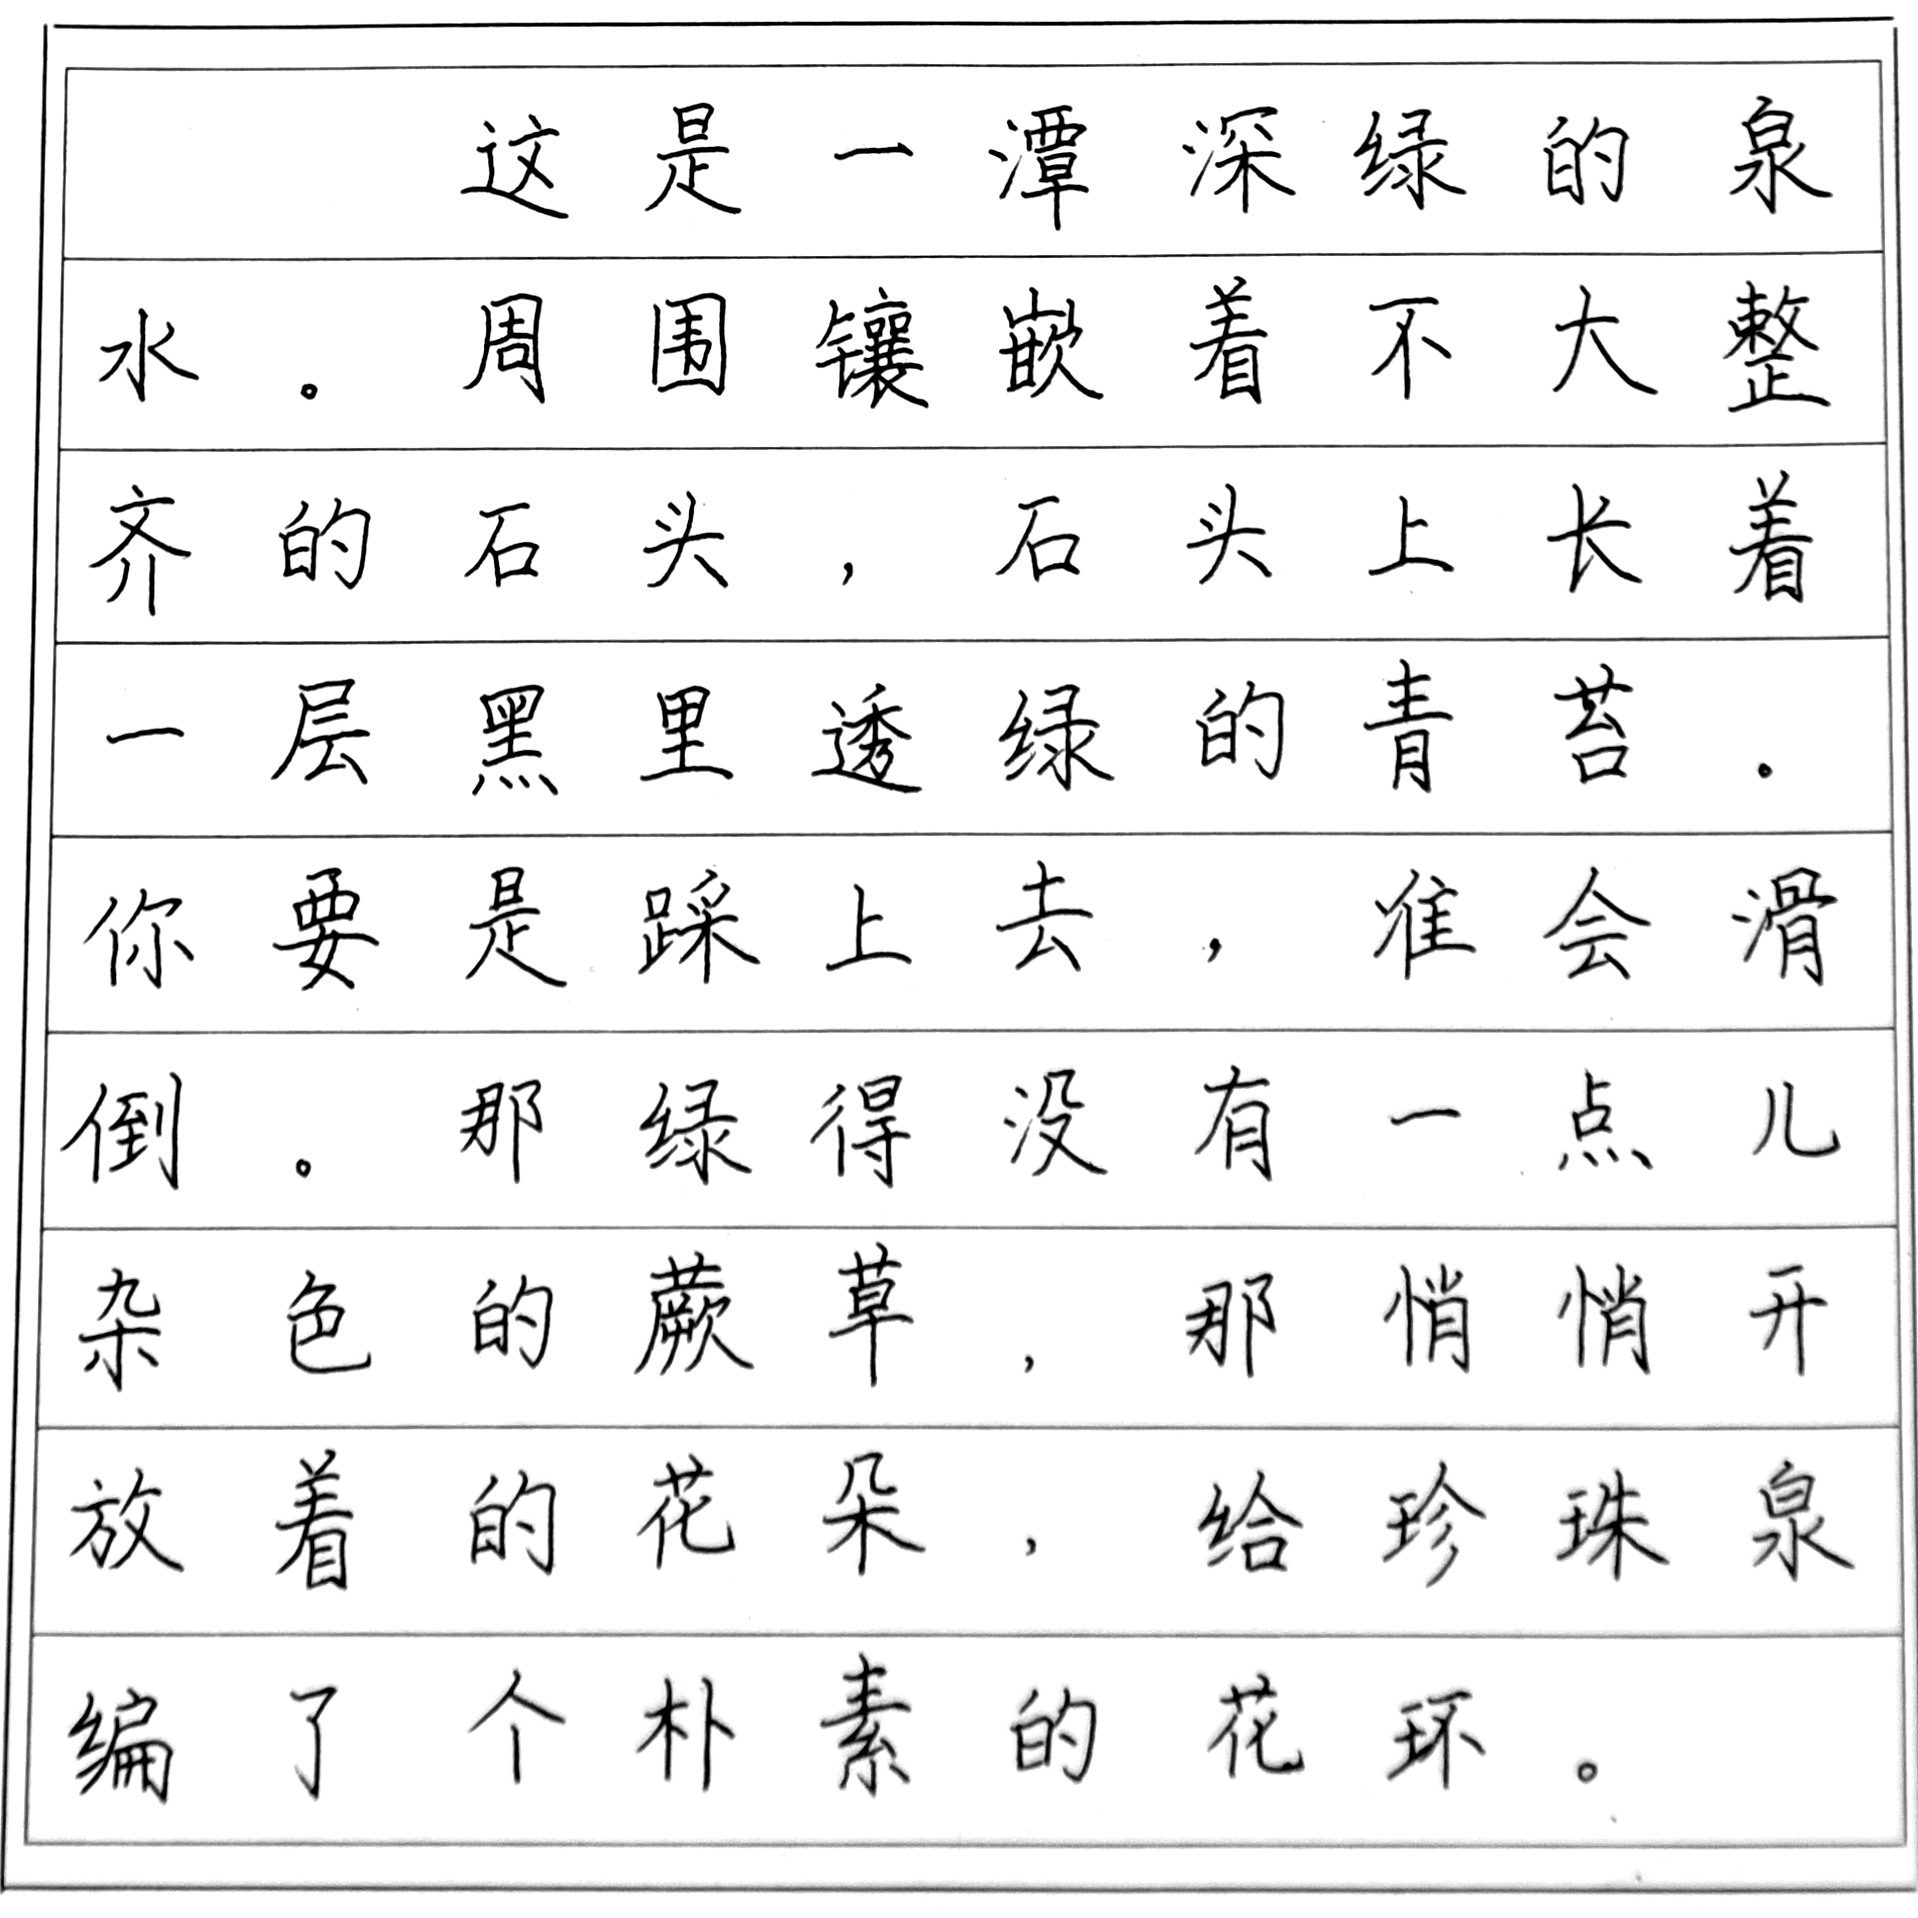 这是一潭深绿的泉
水。周围镶嵌着不大整
齐的石头，石头上长着
一层黑里透绿的青苔.
你要是踩上去，准会滑
倒。那绿得没有一点儿
杂色的蕨草，那悄悄开
放着的花朵，给珍珠泉
编了个朴素的花环。